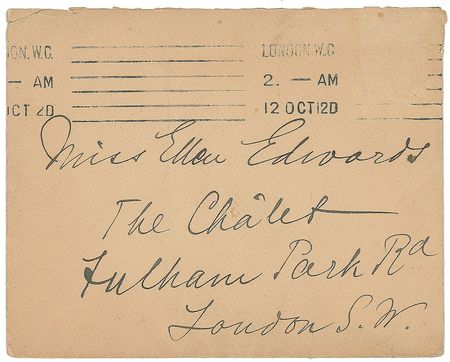 LONDON. W.C. LONDON. W.C
— AM 2. — AM
OCT 12D 12 OCT 12D
Miss Ellen Edwards
The Châlet
Fulham Park Rd
London S.W.